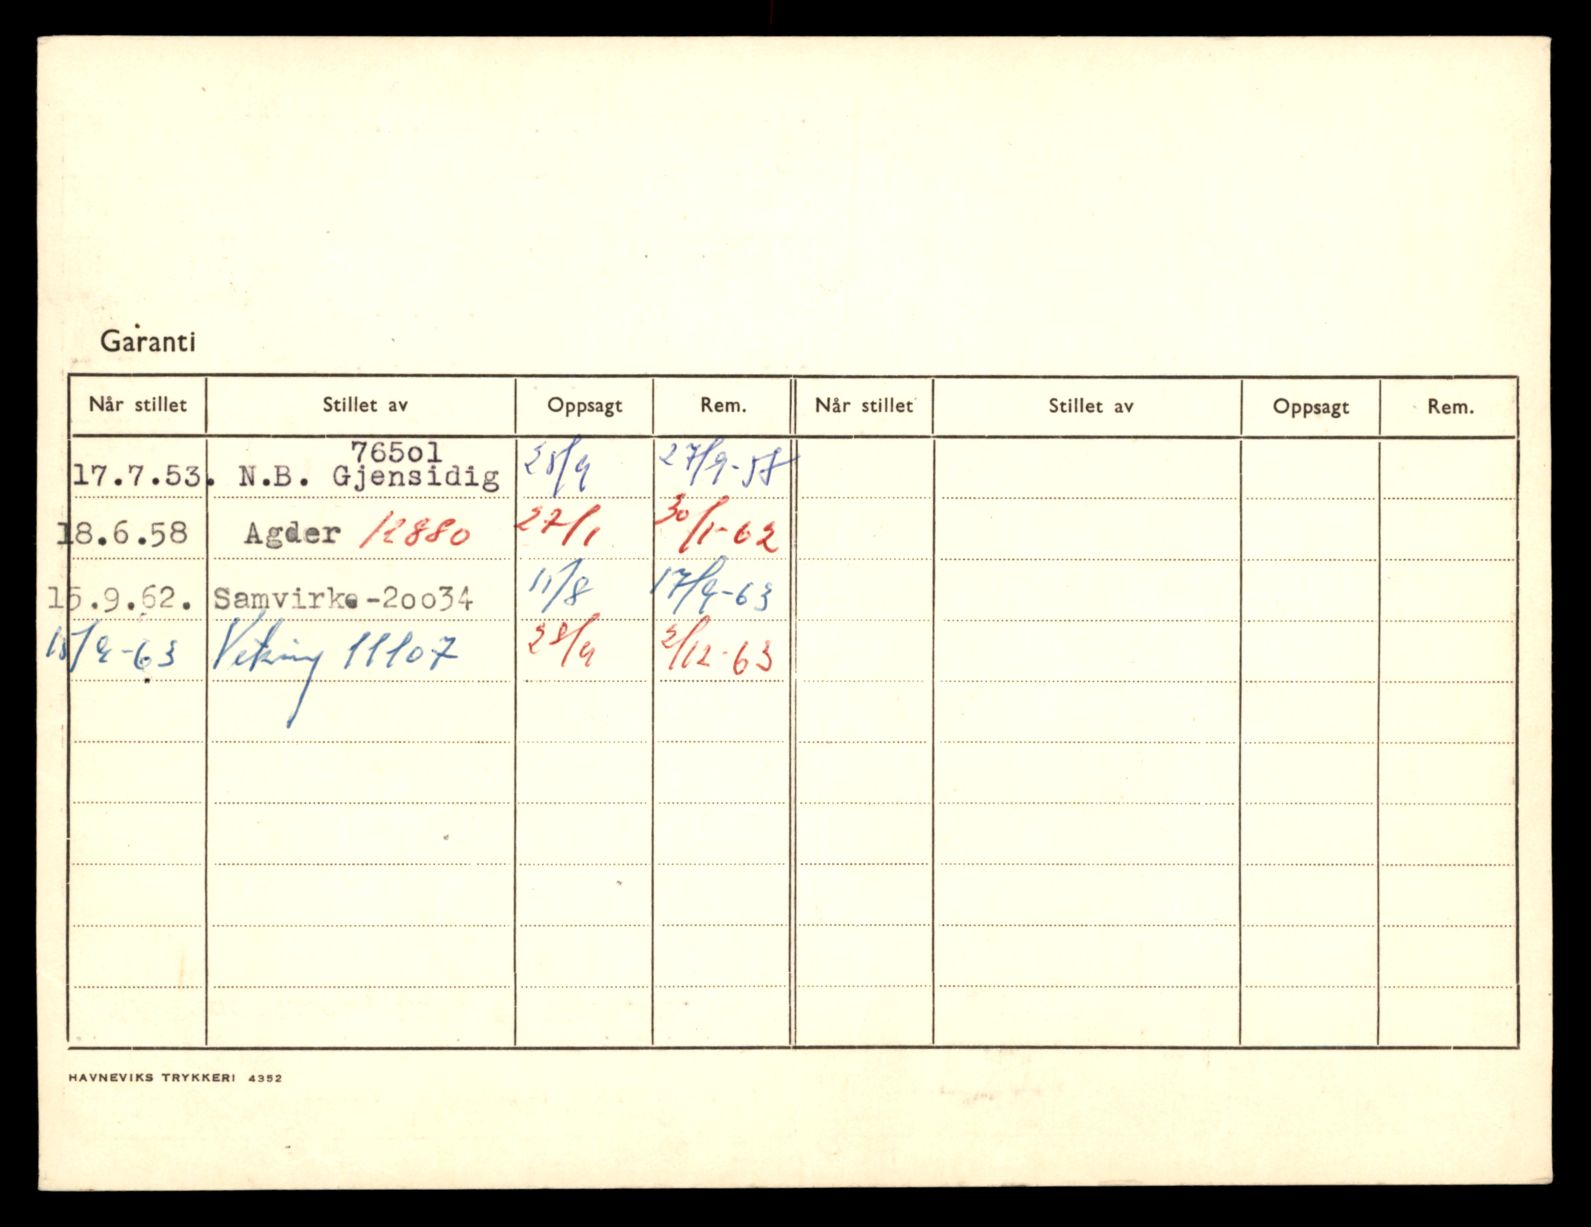 Garanti
Når stillet Stillet av Oppsagt Rem. Når stillet Stillet av Oppsagt Rem.
765o1
17.7.53. N.B. Gjensidig 25/9 27/9-58
18.6.58 Agder 12880 27/1 30/1-62
15.9.62. Samvirke-2oo34 11/8 17/9-63
15/9-63 Viking 11107 28/9 2/12-63
HAVNEVIKS TRYKKERI 4352